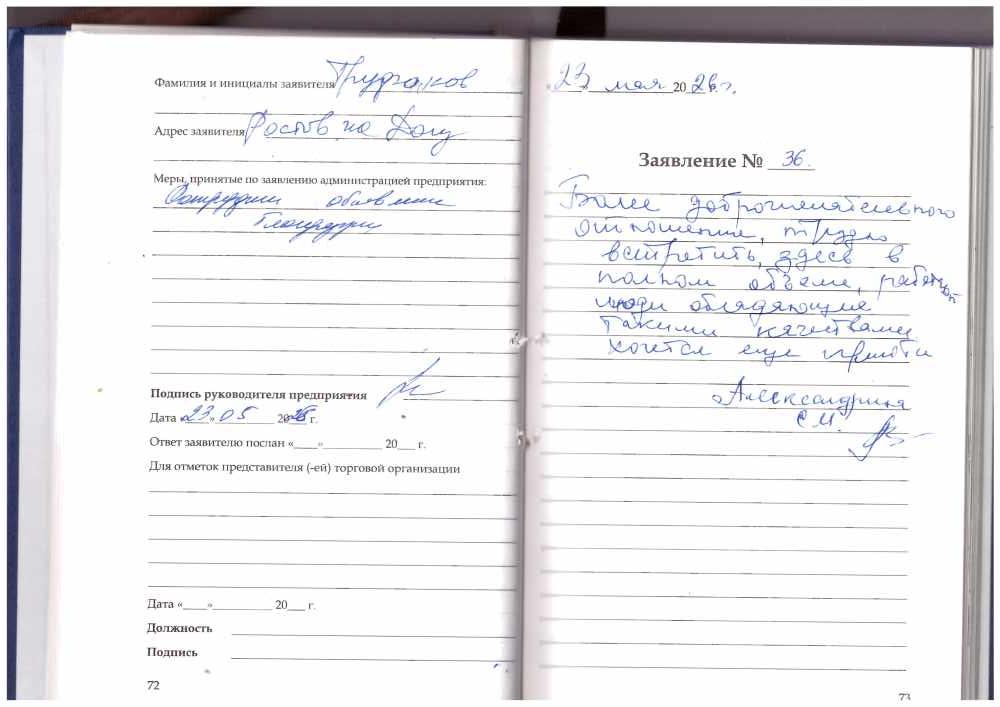 Фамилия и инициалы заявителя
Адрес заявителя Ростов на Дону
Меры, принятые по заявлению администрацией предприятия:
объявлена
Подпись руководителя предприятия
Дата «23» 05 20 г.
Ответ заявителю послан «____»__________ 20___ г.
Для отметок представителя (-ей) торговой организации
Дата «____»__________ 20___ г.
Должность
Подпись
72
23 мая 20 26 г.
Заявление № 36.
Более доброжелательного
отношения, трудно
встретить, здесь в
полном объеме, работают
люди обладающие
такими качествами
хочется еще прийти
Александрина
С.И.
73